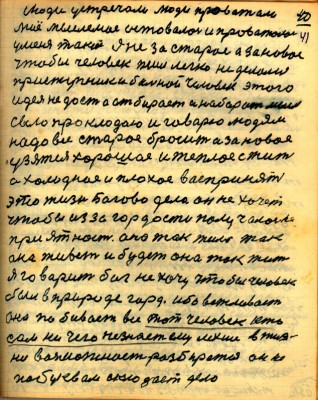 люди устречали люди провожали
моё мышление оставалос и провожало
у меня такие я не за старое а за новое
чтобы человек жил легко не делали
преступники бедной человек этого
идея не доста отбирает и набират
свыло проклодаю и говарю людям
надо все старое бросит а за новое
узятся хорошое и теплое жит
а холодное и плохое васпринят
это жизн багово дело он не хочет
чтобы из за гордости получалос
приятност. она так жила так
она живет и будет она так жит
я говарит бог не хочу чтобы человек
были в природе горд. ибо
она побивает все тот человек кто
сам ни чего незнает ему лехше в жиз-
ни вазможност разбиратся он не
по буквам создает дело
40
41